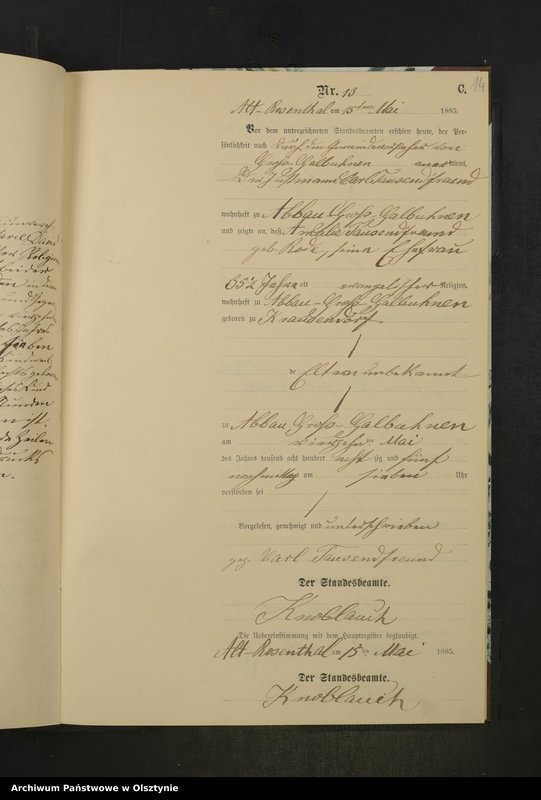 Nr. 13
C. 14
Alt-Rosenthal am 15ten Mai 1885.
Vor dem unterzeichneten Standesbeamten erschien heute, der Per-
sönlichkeit nach durch den Gemeindevorsteher von
Groß Galbuhnen anerkannt,
Der Instmann Carl Tausendfreund
wohnhaft zu Abbau Groß Galbuhnen
und zeigte an, daß Amalie Tausendfreund
geb. Rode, seine Ehefrau
65 1/2 Jahre alt evangelischer Religion,
wohnhaft zu Abbau-Groß Galbuhnen
geboren zu Krausendorf
de Eltern unbekannt
zu Abbau Groß-Galbuhnen
am vierzehn ten Mai
des Jahres tausend acht hundert acht zig und fünf
nachmittag um sieben Uhr
verstorben sei
Vorgelesen, genehmigt und unterschrieben
gez. Carl Tausendfreund
Der Standesbeamte.
Knoblauch
Die Uebereinstimmung mit dem Hauptregister beglaubigt
Alt-Rosenthal am 15ten Mai 1885.
Der Standesbeamte.
Knoblauch
Archiwum Państwowe w Olsztynie